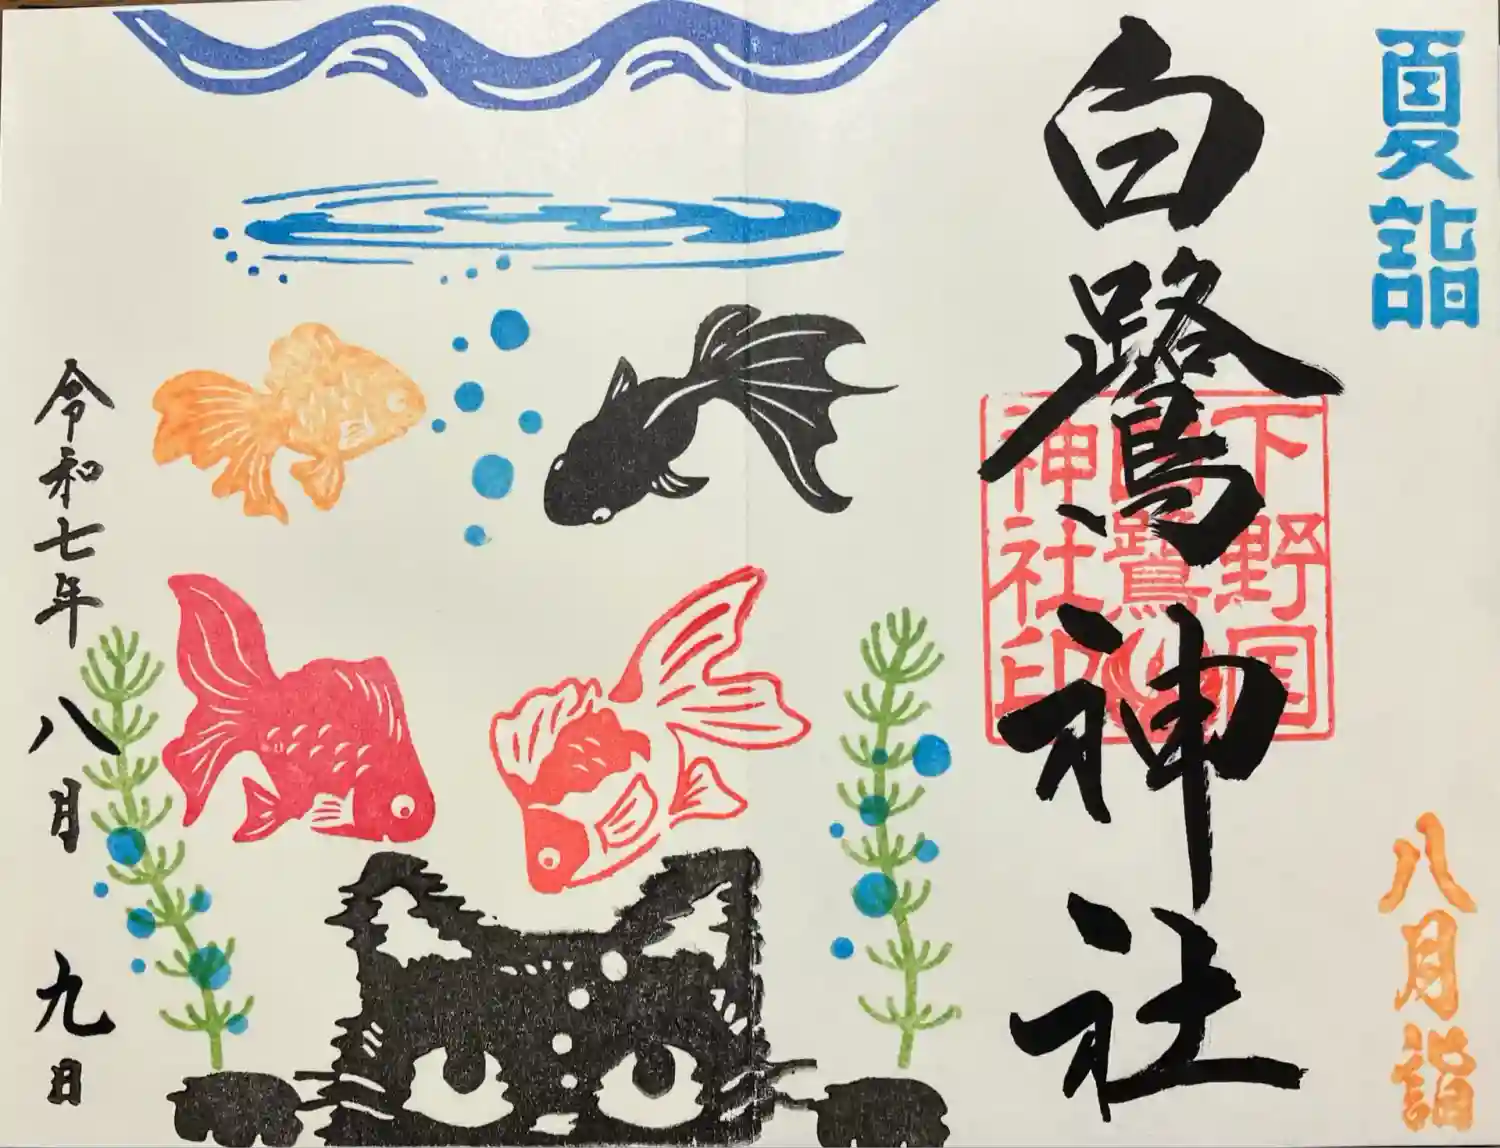 夏詣
八月詣
白鷺神社
下野国
白鷺
神社印
令和七年八月九日